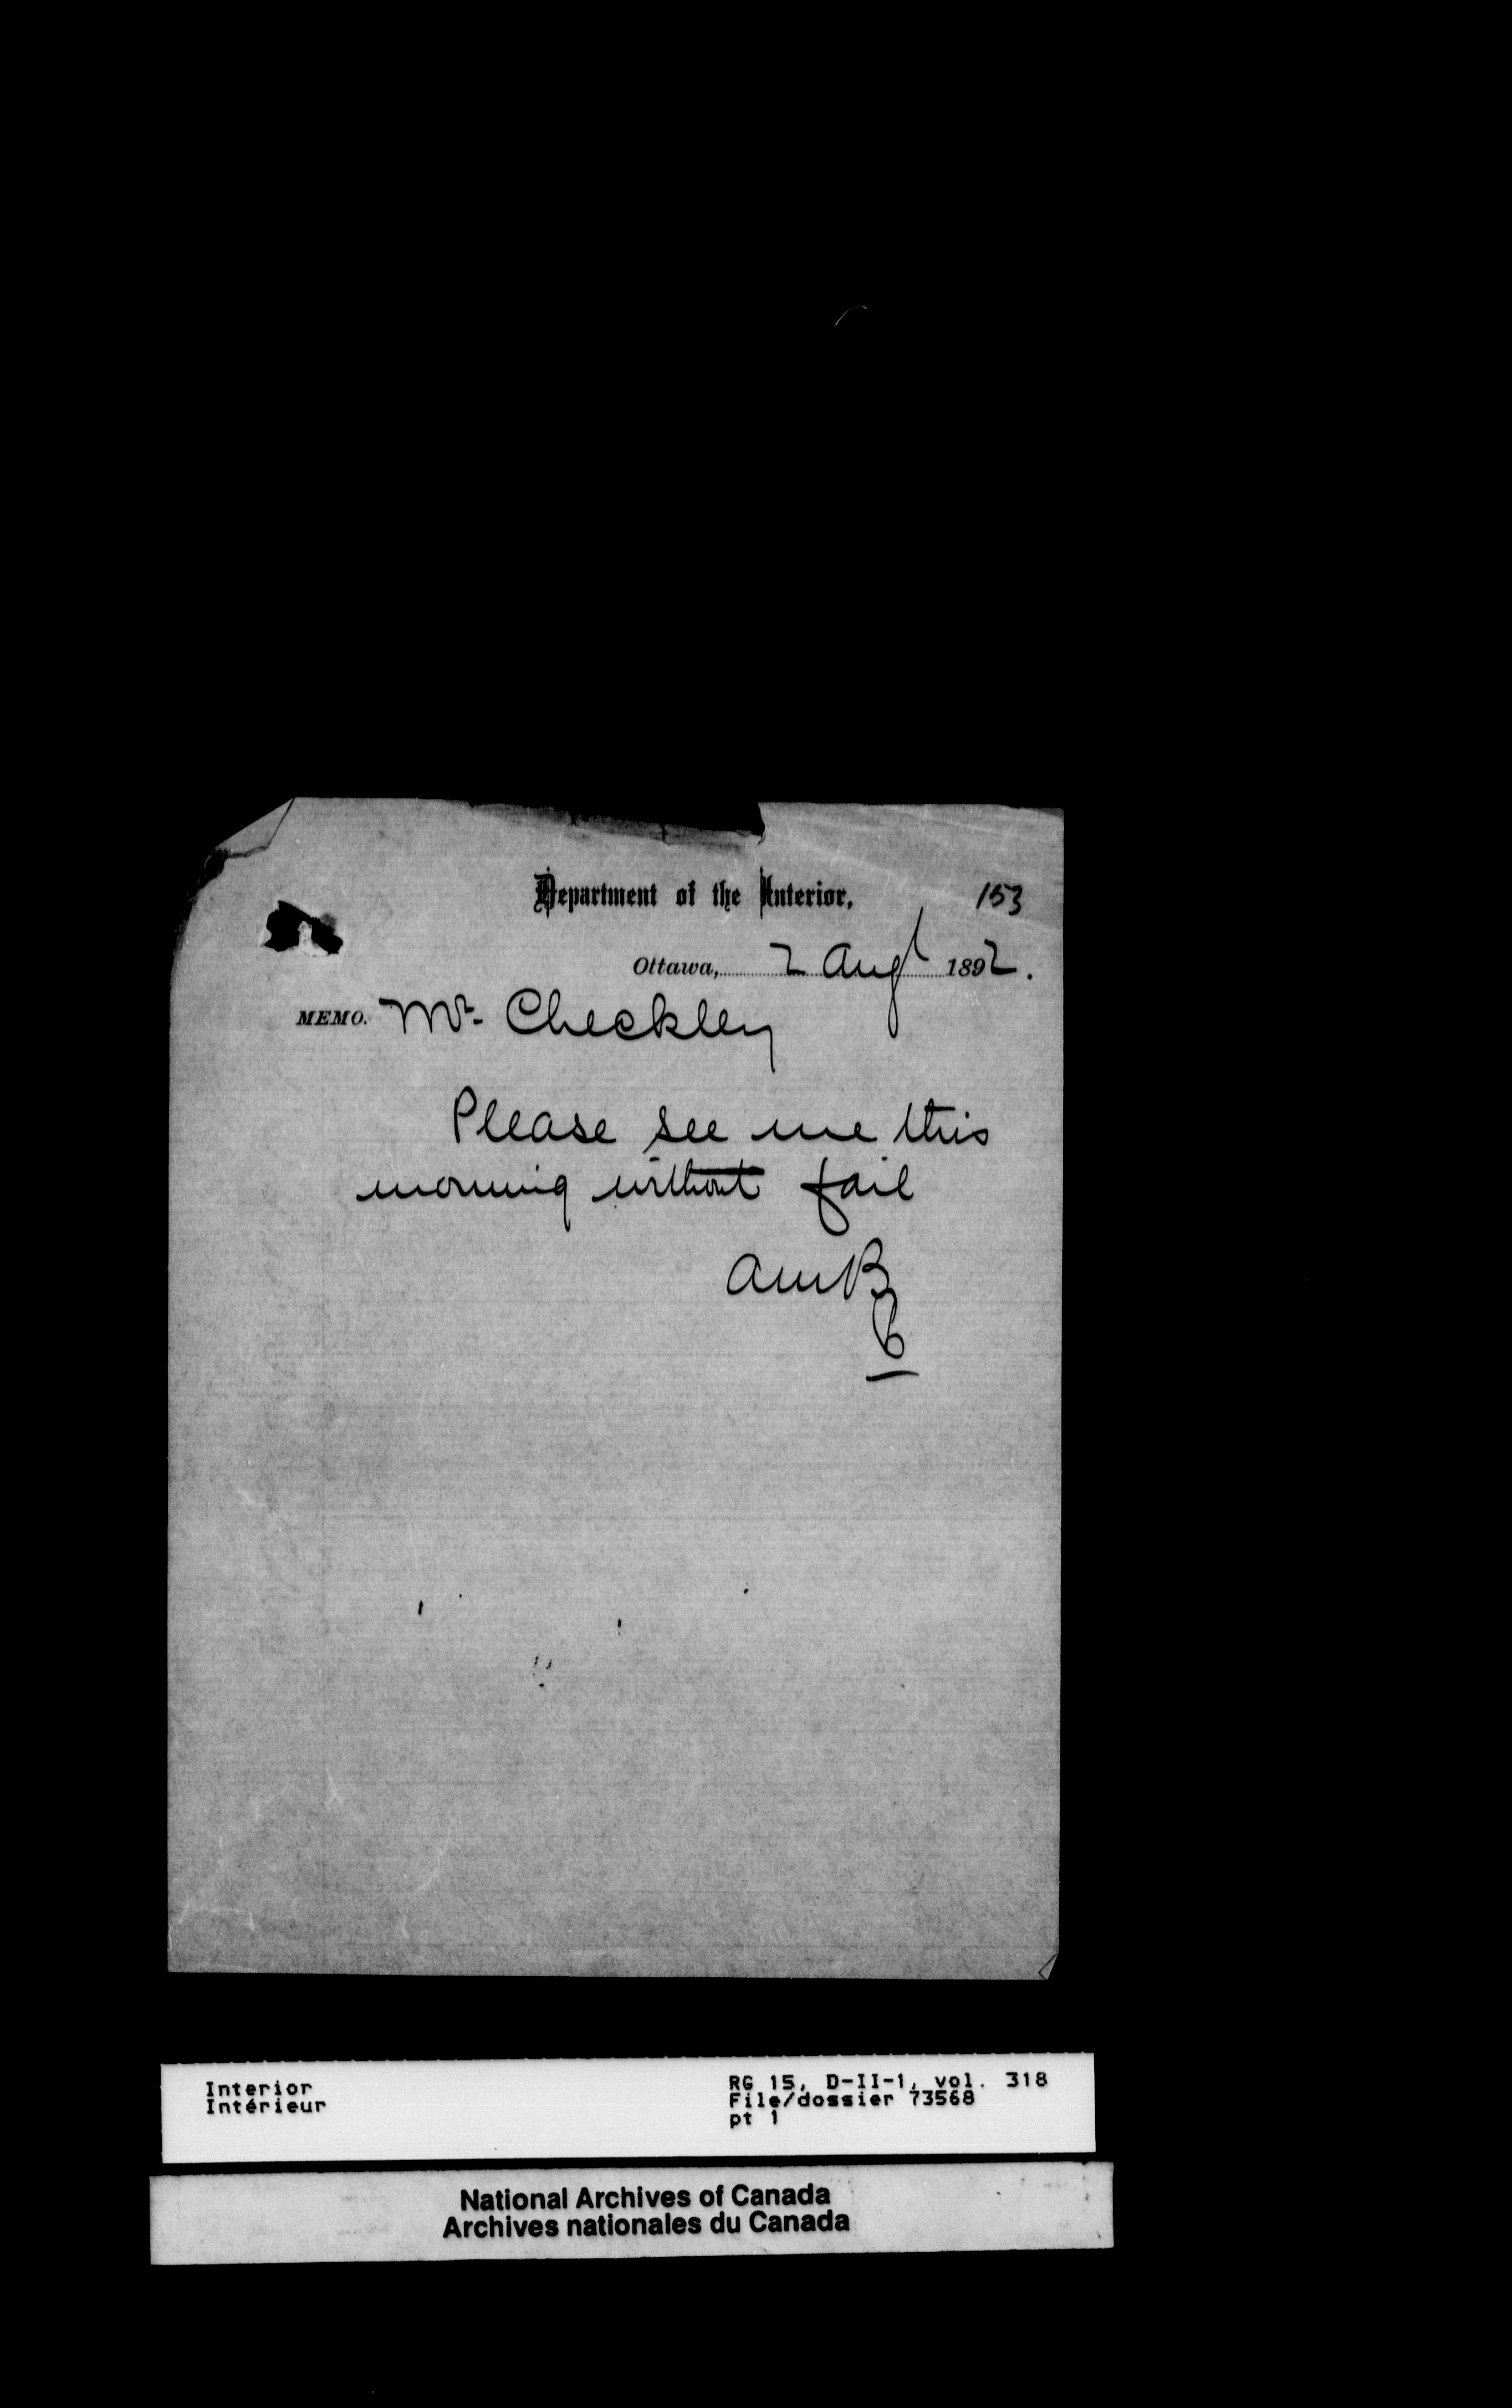 Department of the Interior,
153
Ottawa, 2 Augt 1892.
MEMO. Mr. Checkley
Please see me this
morning without fail
AMB
Interior
Intérieur
RG 15, D-II-1, vol. 318
File/dossier 73568
pt 1
National Archives of Canada
Archives nationales du Canada